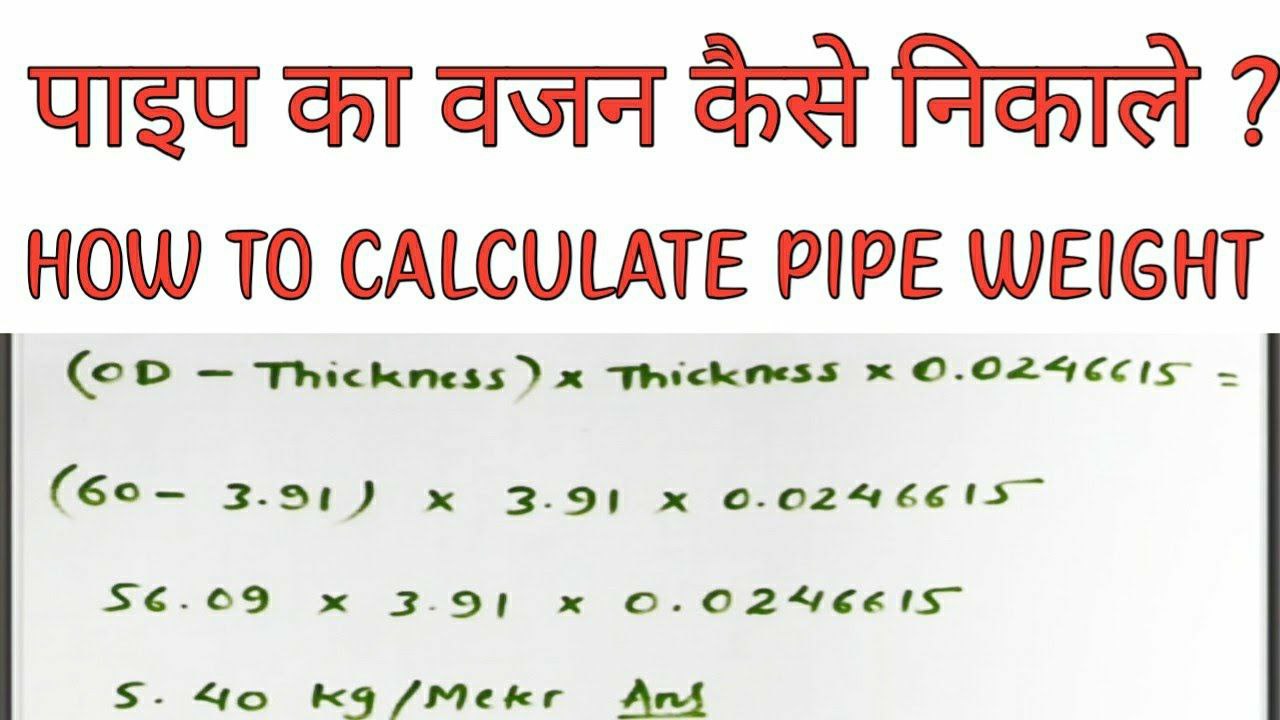 पाइप का वजन कैसे निकाले ?
HOW TO CALCULATE PIPE WEIGHT
(OD - Thickness) x Thickness x 0.0246615 =
(60 - 3.91) x 3.91 x 0.0246615
56.09 x 3.91 x 0.0246615
5.40 kg/Meter Ans